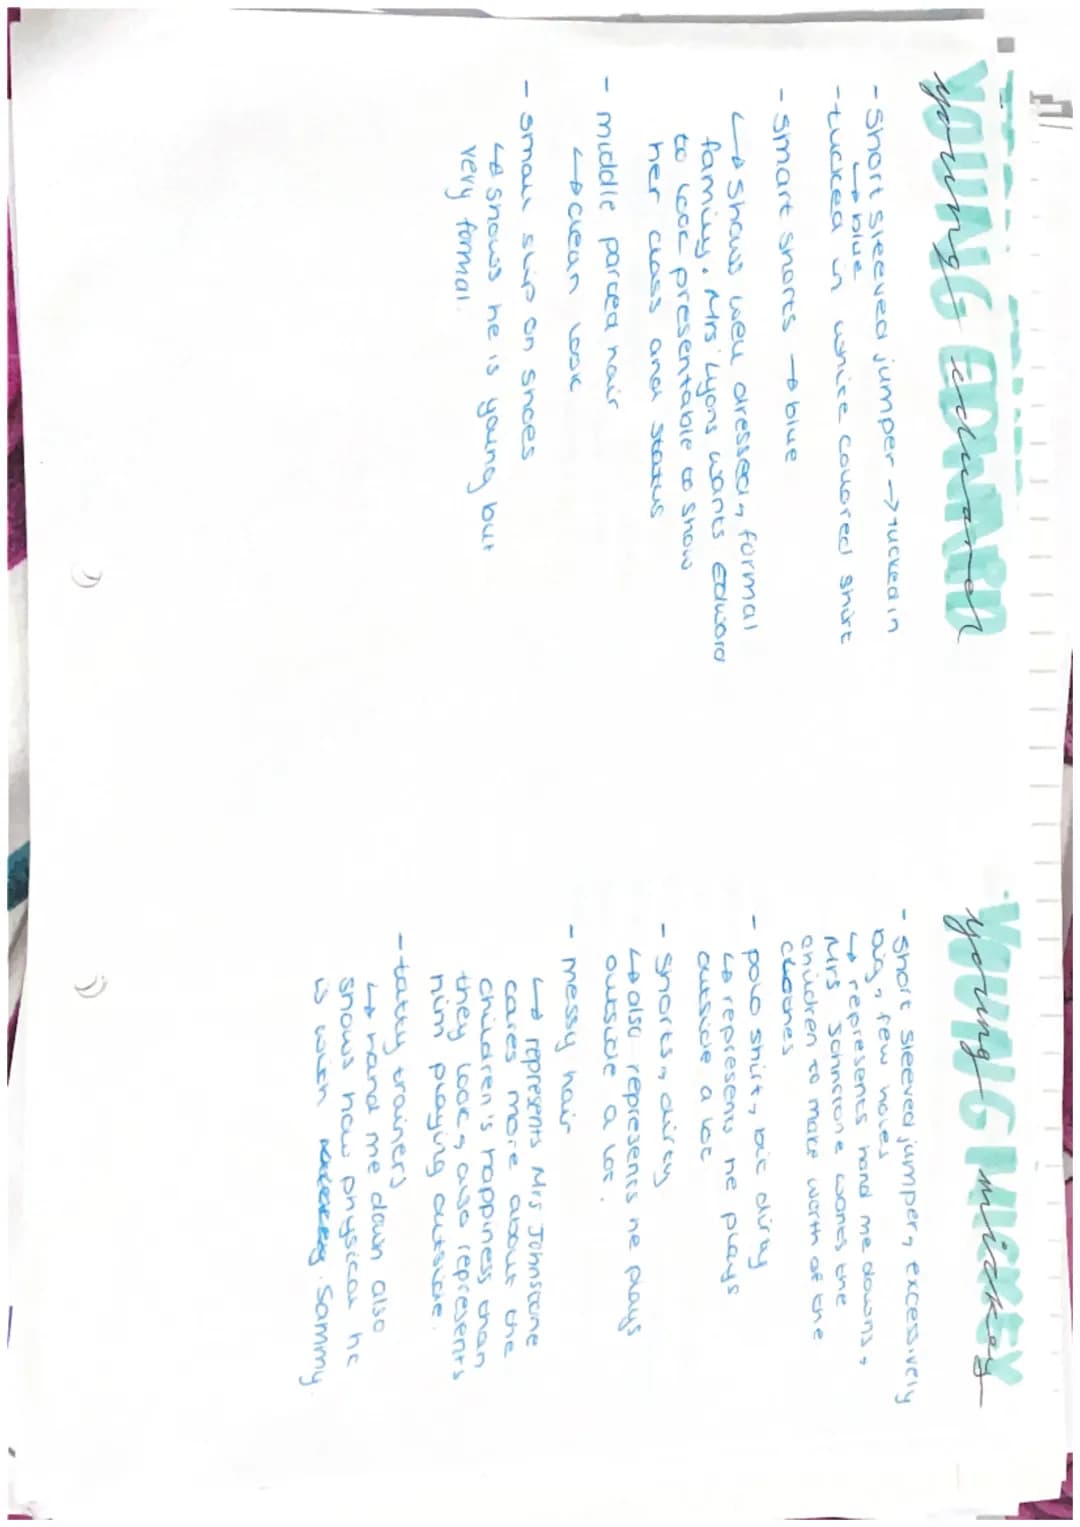 YOUNG EDWARD
young edward
- Short sleeved jumper → tucked in
↳ blue
- tucked in white collared shirt
- smart shorts → blue
↳ Shows well dressed, formal
family. Mrs Lyons wants Edward
to look presentable to show
her class and status
- middle parted hair
↳ clean look
- small slip on shoes
↳ shows he is young but
very formal.
YOUNG MICKEY
young mickey
- Short sleeved jumper, excessively
big, few holes
↳ represents hand me downs,
Mrs Johnstone wants the
children to make worth of the
clothes
- polo shirt, bit dirty
↳ represents he plays
outside a lot
- shorts, dirty
↳ also represents he plays
outside a lot.
- messy hair
↳ represents Mrs Johnstone
cares more about the
children's happiness than
they look, also represents
him playing outside.
- tatty trainers
↳ hand me down also
shows how physical he
is with Sammy.